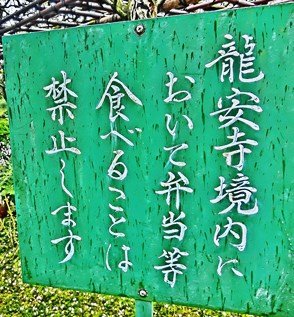 龍安寺境内に
おいて弁当等
食べることは
禁止します